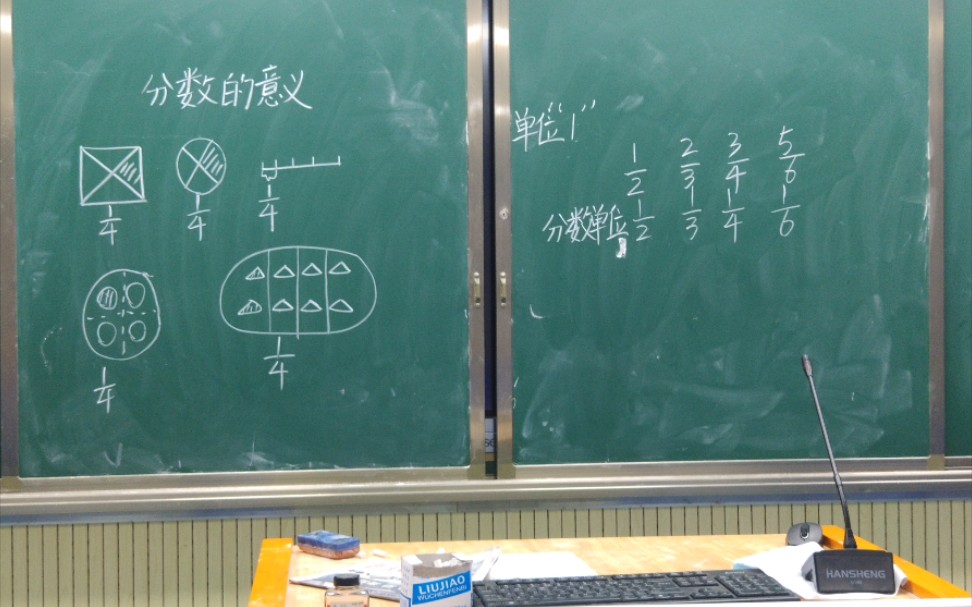 分数的意义
1/4 1/4 1/4
1/4 1/4
单位“1”
1/2 2/3 3/4 5/6
分数单位 1/2 1/3 1/4 1/6
LIUJIAO
WUCHENFENBI
HANSHENG